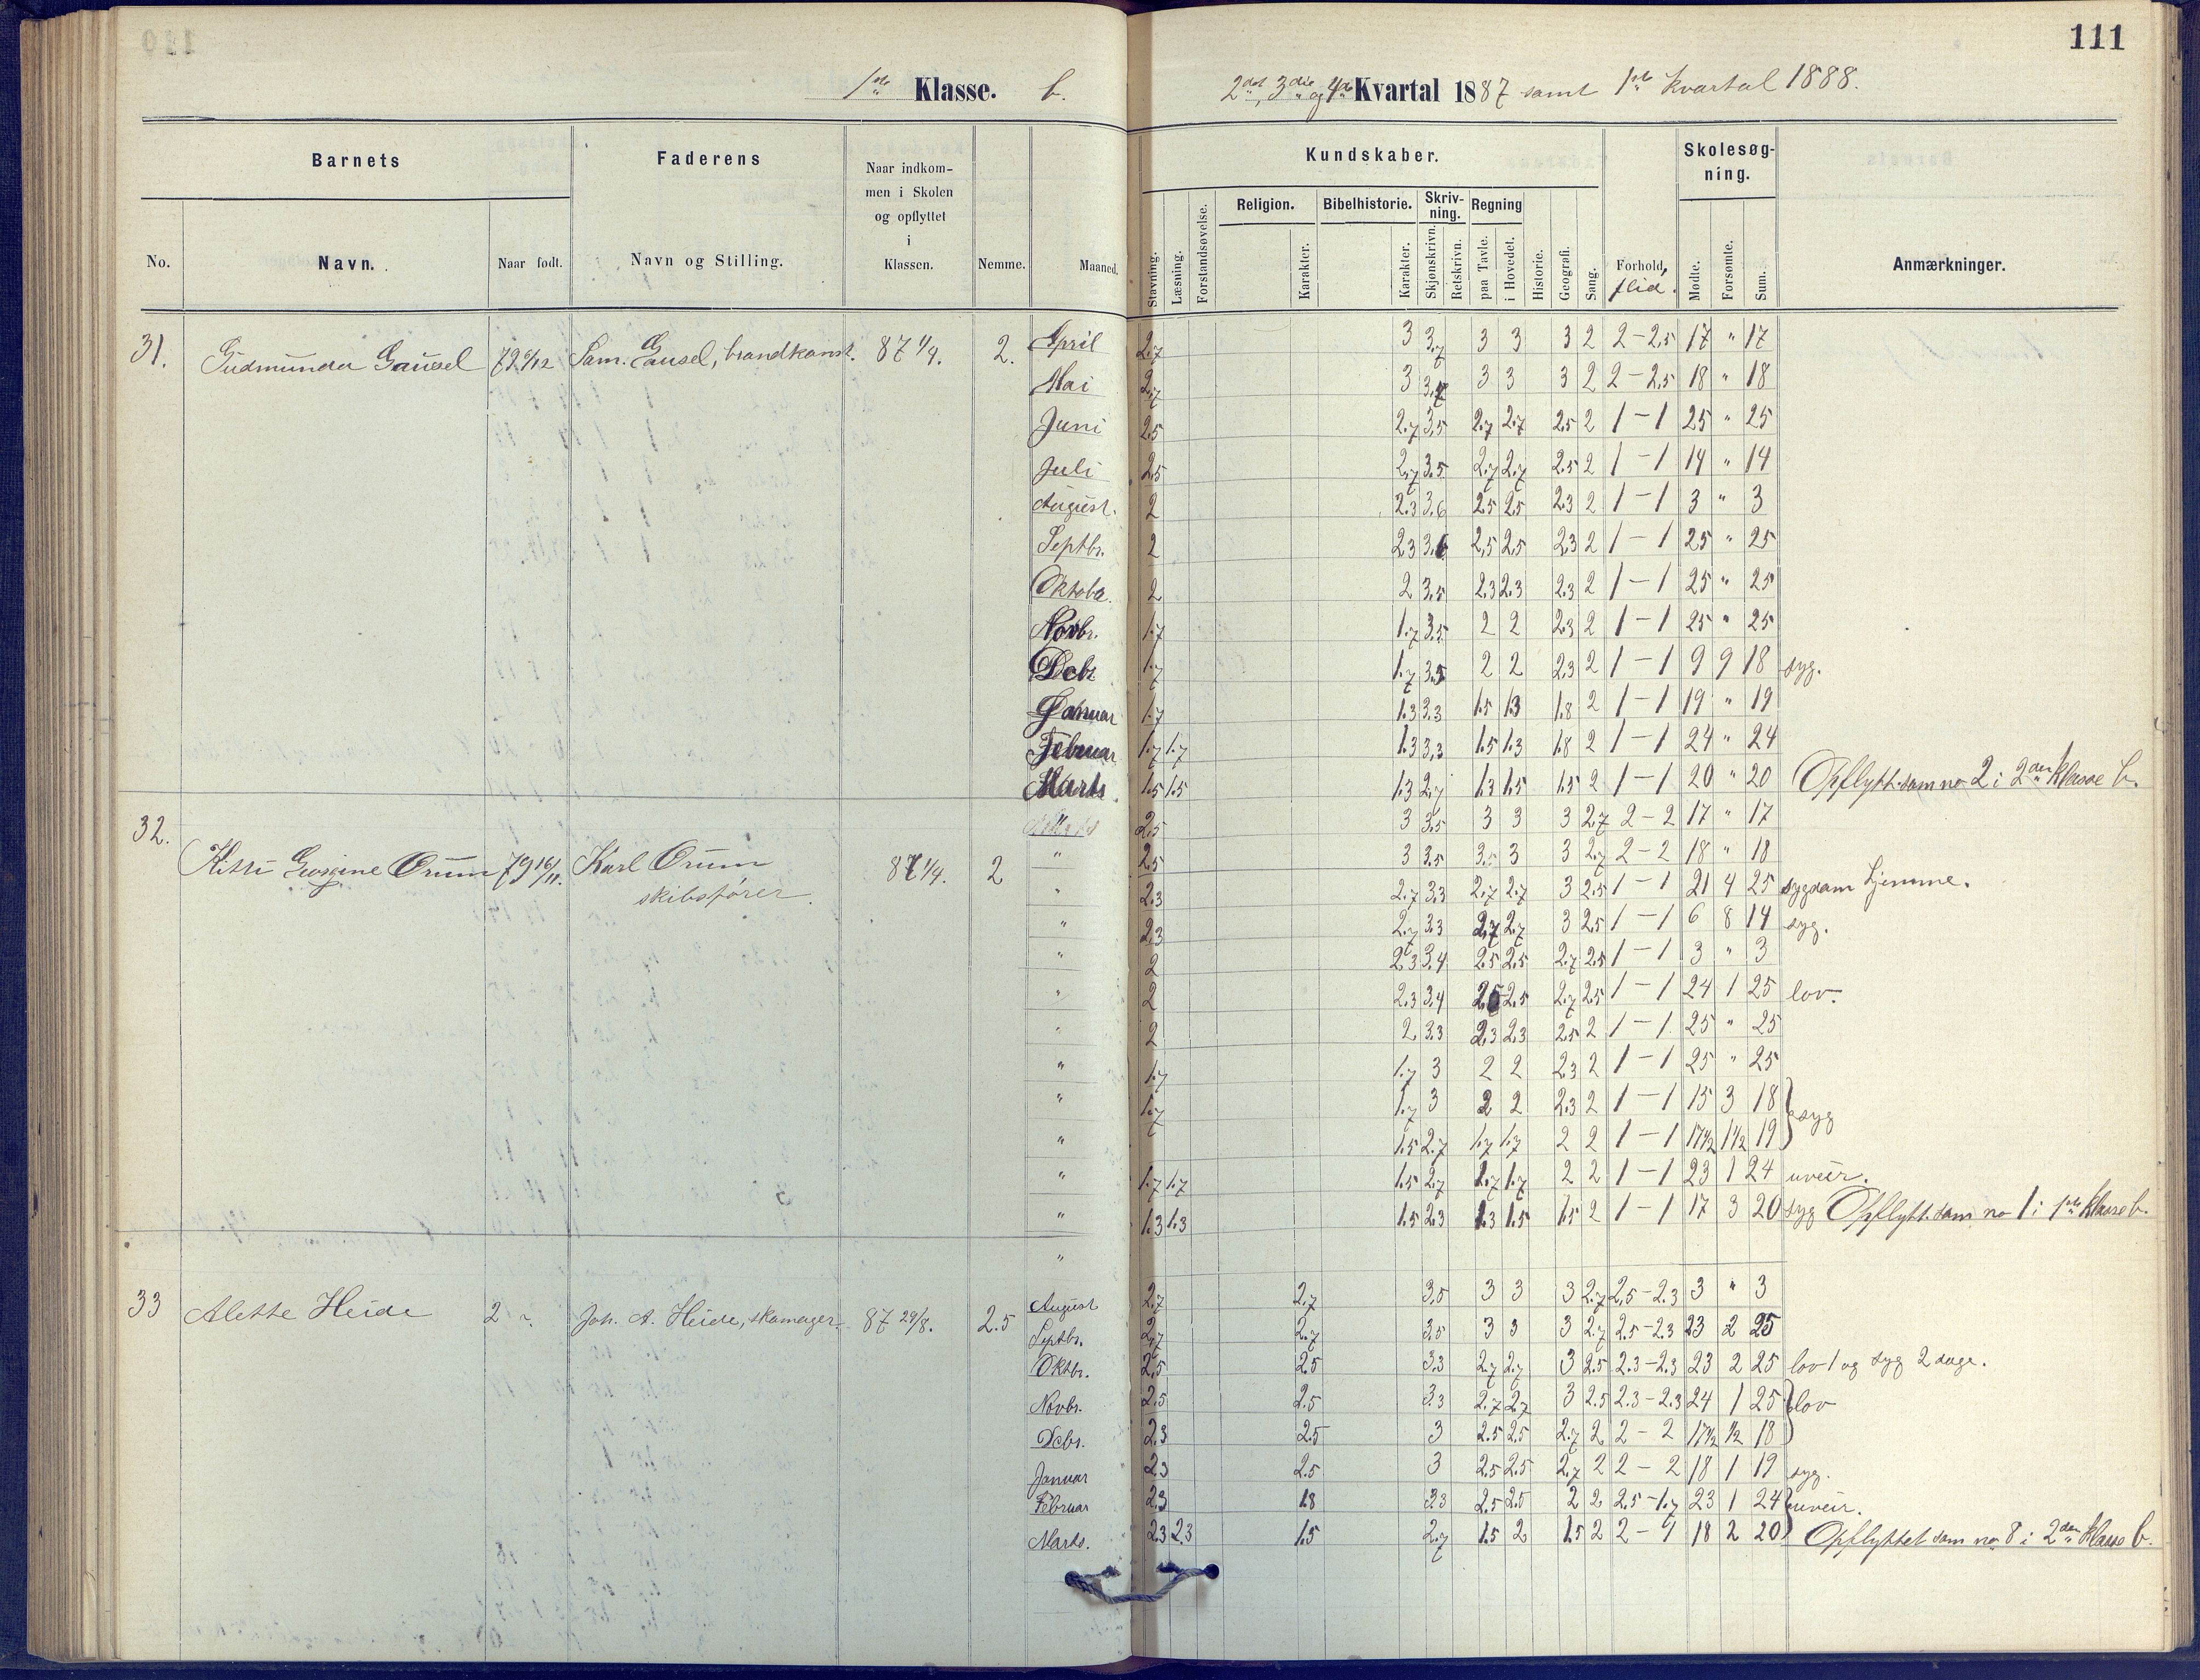 111
1ste Klasse. b. 2det, 3die og 4de Kvartal 1887 samt 1ste kvartal 1888.
Barnets Faderens Naar indkommen i Skolen og opflyttet i Klassen. Nemme. Maaned. Kundskaber. Forhold, flid. Skolesøgning. Anmærkninger.
No. Navn. Naar født. Navn og Stilling. Stavning. Læsning. Forstandsøvelse. Religion. Karakter. Bibelhistorie. Karakter. Skrivning. Skjønskrivn. Retskrivn. Regning paa Tavle. i Hovedet. Historie. Geografi. Sang. Mødte. Forsømte. Sum.
31. Gudmunda Gausel 79 6/12 Sam. Gausel, brandkonst. 87 1/4. 2. April 2.7 3 3.7 3 3 3 2 2-2.5 17 " 17
Mai 2.7 3 3.7 3 3 3 2 2-2.5 18 " 18
Juni 2.5 2.7 3.5 2.7 2.7 2.5 2 1-1 25 " 25
Juli 2.5 2.7 3.5 2.7 2.7 2.5 2 1-1 14 " 14
August. 2 2.3 3.6 2.5 2.5 2.3 2 1-1 3 " 3
Septbr. 2 2.3 3.6 2.5 2.5 2.3 2 1-1 25 " 25
Oktober. 2 2 3.5 2.3 2.3 2.3 2 1-1 25 " 25
Novbr. 1.7 1.7 3.5 2 2 2.3 2 1-1 25 " 25
Debr 1.7 1.7 3.5 2 2 2.3 2 1-1 9 9 18 syg.
Januar 1.7 1.3 3.3 1.5 1.3 1.8 2 1-1 19 " 19
Februar 1.7 1.7 1.3 3.3 1.5 1.3 1.8 2 1-1 24 " 24
Marts 1.5 1.5 1.3 2.7 1.3 1.5 1.5 2 1-1 20 " 20 Opflytt. som no 2 i 2den klasse b.
32. Georgine Orum 79 16/11. Karl Orum skibsfører. 87 1/4. 2 2.5 3 3.5 3 3 3 2.7 2-2 17 " 17
" 2.5 3 3.5 3.5 3 3 2.7 2-2 18 " 18
" 2.3 2.7 3.3 2.7 2.7 3 2.5 1-1 21 4 25 sygdom hjemme.
" 2.3 2.7 3.3 2.7 2.7 3 2.5 1-1 6 8 14 syg.
" 2 2.3 3.4 2.5 2.5 2.7 2.5 1-1 3 " 3
" 2 2.3 3.4 2.5 2.5 2.7 2.5 1-1 24 1 25 lov.
" 2 2 3.3 2.3 2.3 2.5 2 1-1 25 " 25
" 1.7 1.7 3 2 2 2.3 2 1-1 25 " 25
" 1.7 1.7 3 2 2 2.3 2 1-1 15 3 18 syg
" 1.5 2.7 1.7 1.7 2 2 1-1 17½ 1½ 19
" 1.7 1.7 1.5 2.7 1.7 1.7 2 2 1-1 23 1 24 uveir.
" 1.3 1.3 1.5 2.3 1.3 1.5 1.5 2 1-1 17 3 20 syg Opflytt. som no 1 i 1ste klasse b.
"
33 Alette Heide 2 Joh. A. Heide, skomager. 87 29/8. 2.5 August 2.7 2.7 3.5 3 3 3 2.7 2.5-2.3 3 " 3
Septbr. 2.7 2.7 3.5 3 3 3 2.7 2.5-2.3 23 2 25
Oktbr. 2.5 2.5 3.3 2.7 2.7 3 2.5 2.3-2.3 23 2 25 lov 1 og syg 2 dage.
Novbr. 2.5 2.5 3.3 2.7 2.7 3 2.5 2.3-2.3 24 1 25 lov
Debr. 2.3 2.5 3 2.5 2.5 2.7 2 2-2 17½ ½ 18
Januar 2.3 2.5 3 2.5 2.5 2.7 2 2-2 18 1 19 syg.
Februar 2.3 1.8 3.3 2.5 2.5 2 2 2.5-1.7 23 1 24 uveir.
Marts. 2.3 2.3 1.5 2.7 1.5 2 1.5 2 2-1 18 2 20 Opflyttet som no 8 i 2den klasse b.